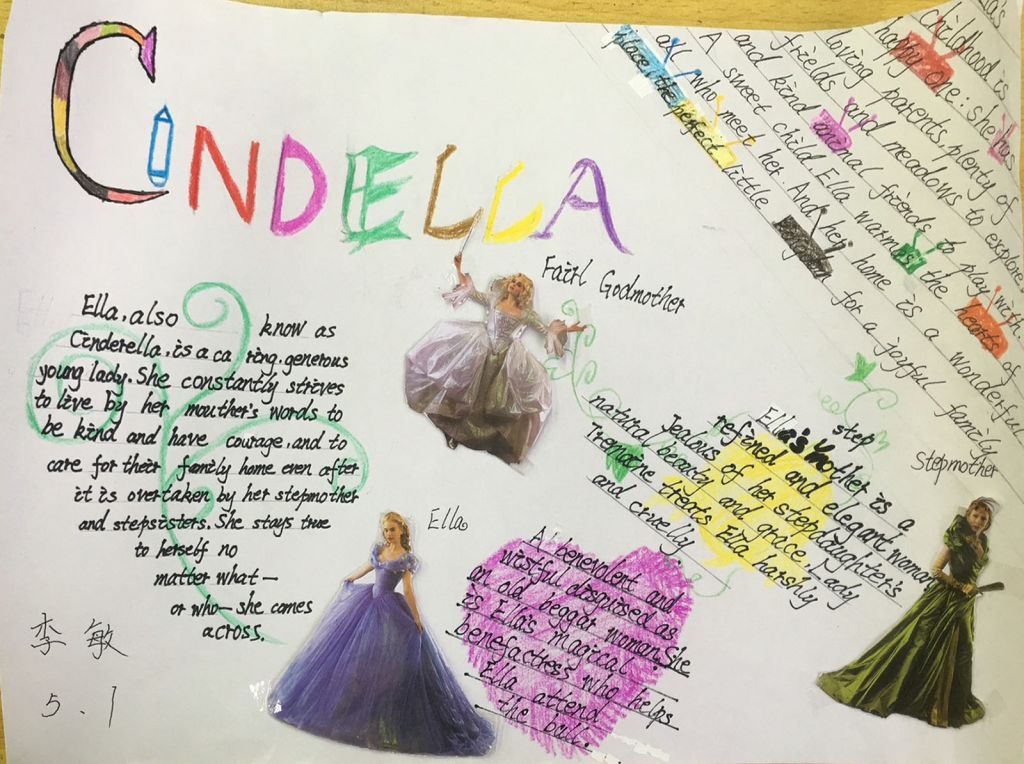 CINDELLA
Ella, also know as
Cinderella, is a ca ring, generous
young lady. She constantly strives
to live by her mouther's words to
be kind and have courage, and to
care for their family home even after
it is overtaken by her stepmother
and stepsisters. She stays true
to herself no
matter what—
or who— she comes
across.
李敏
5.1
Fairl Godmother
Ella
A benevolent and
wistful disguised as
an old beggar woman. She
is Ella's magical
benefactress who helps
Ella attend
the ball.
step
Ella's mother is a
refined and elegant woman
Jealous of her stepdaughter's
natural beauty and grace. Lady
Tremaine treats Ella harshly
and cruely.
Stepmother
childhood is
happy one: She has
loving parents, plenty of
fields and meadows to explore
and kind animal friends to play with.
A sweet child Ella warms the hearts of
all who meet her. And her home is a wonderful
place, the perfect little for a joyful family